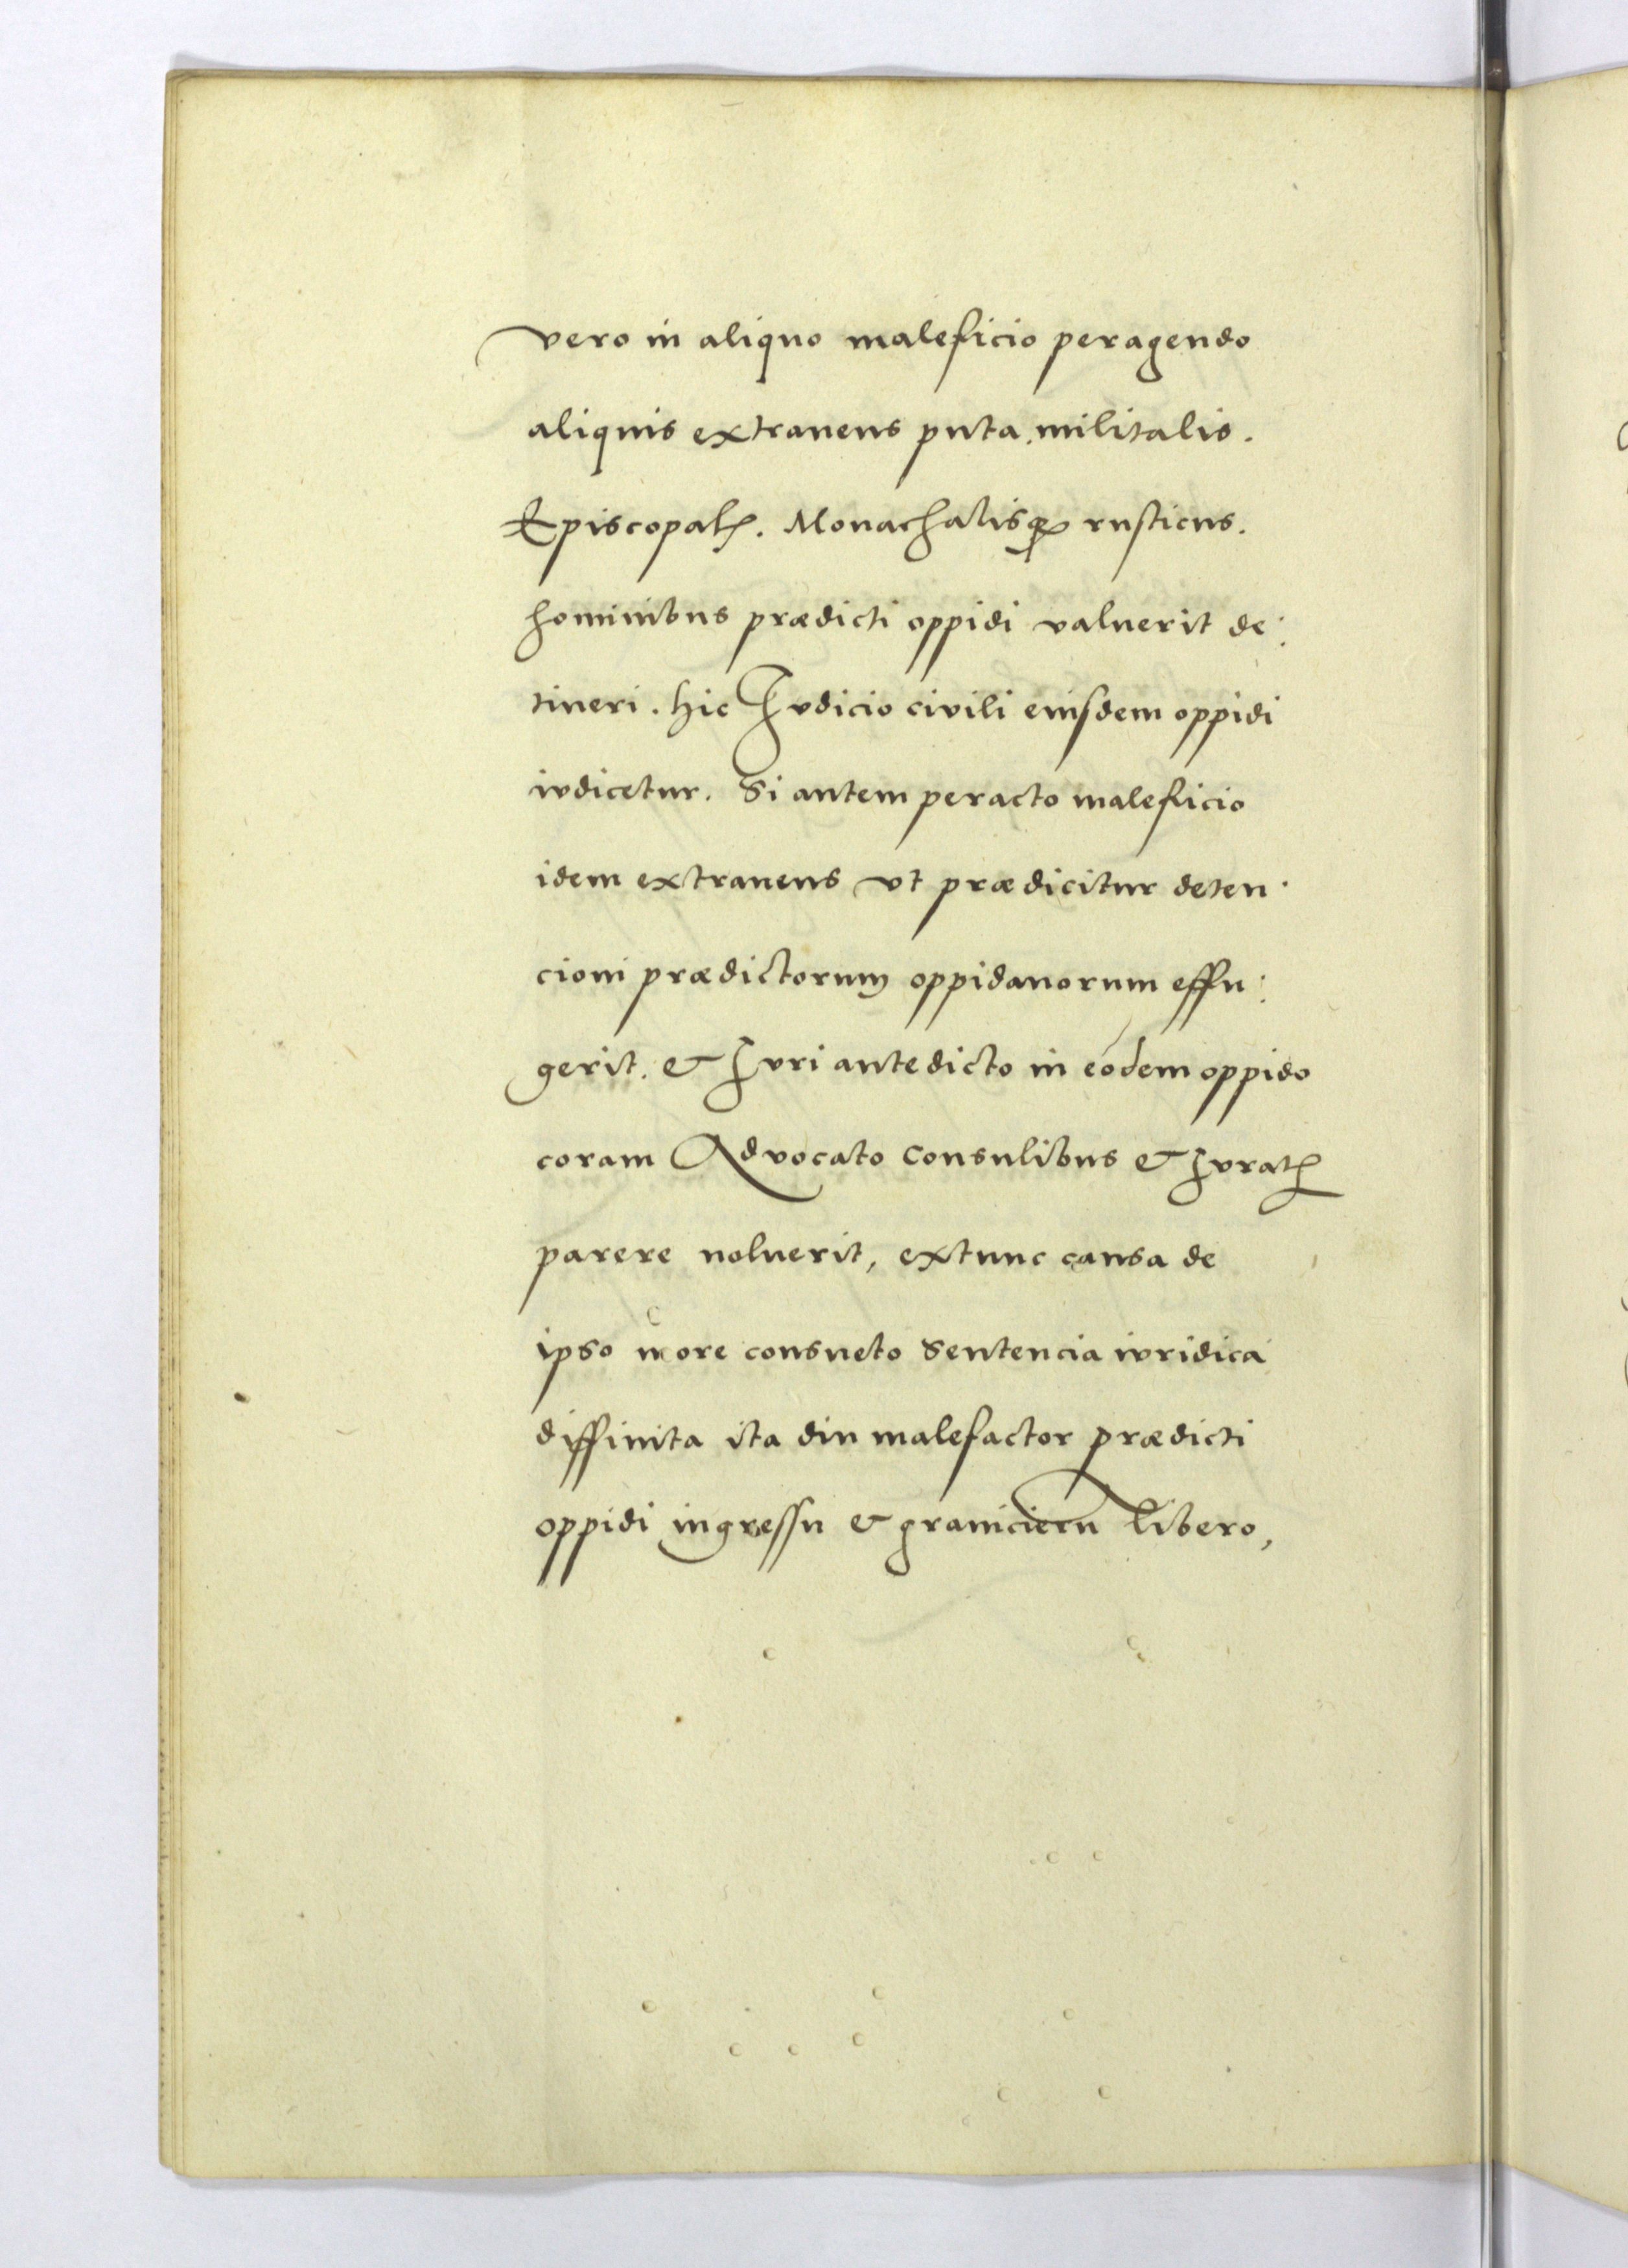 vero in aliquo maleficio peragendo
aliquis extraneus puta. militalis.
Episcopalis. Monachalisque rusticus.
hominibus prædicti oppidi valuerit de:
tineri. hic Iudicio civili eiusdem oppidi
iudicetur. Si autem peracto maleficio
idem extraneus vt prædicitur deten:
cioni prædictorum oppidanorum effu:
gerit. & Iuri antedicto in eodem oppido
coram Advocato Consulibus & Iuratis
parere noluerit, extunc causa de
ipso more consueto Sentencia iuridica
diffinita ita diu malefactor prædicti
oppidi ingressu & graniciern libero,